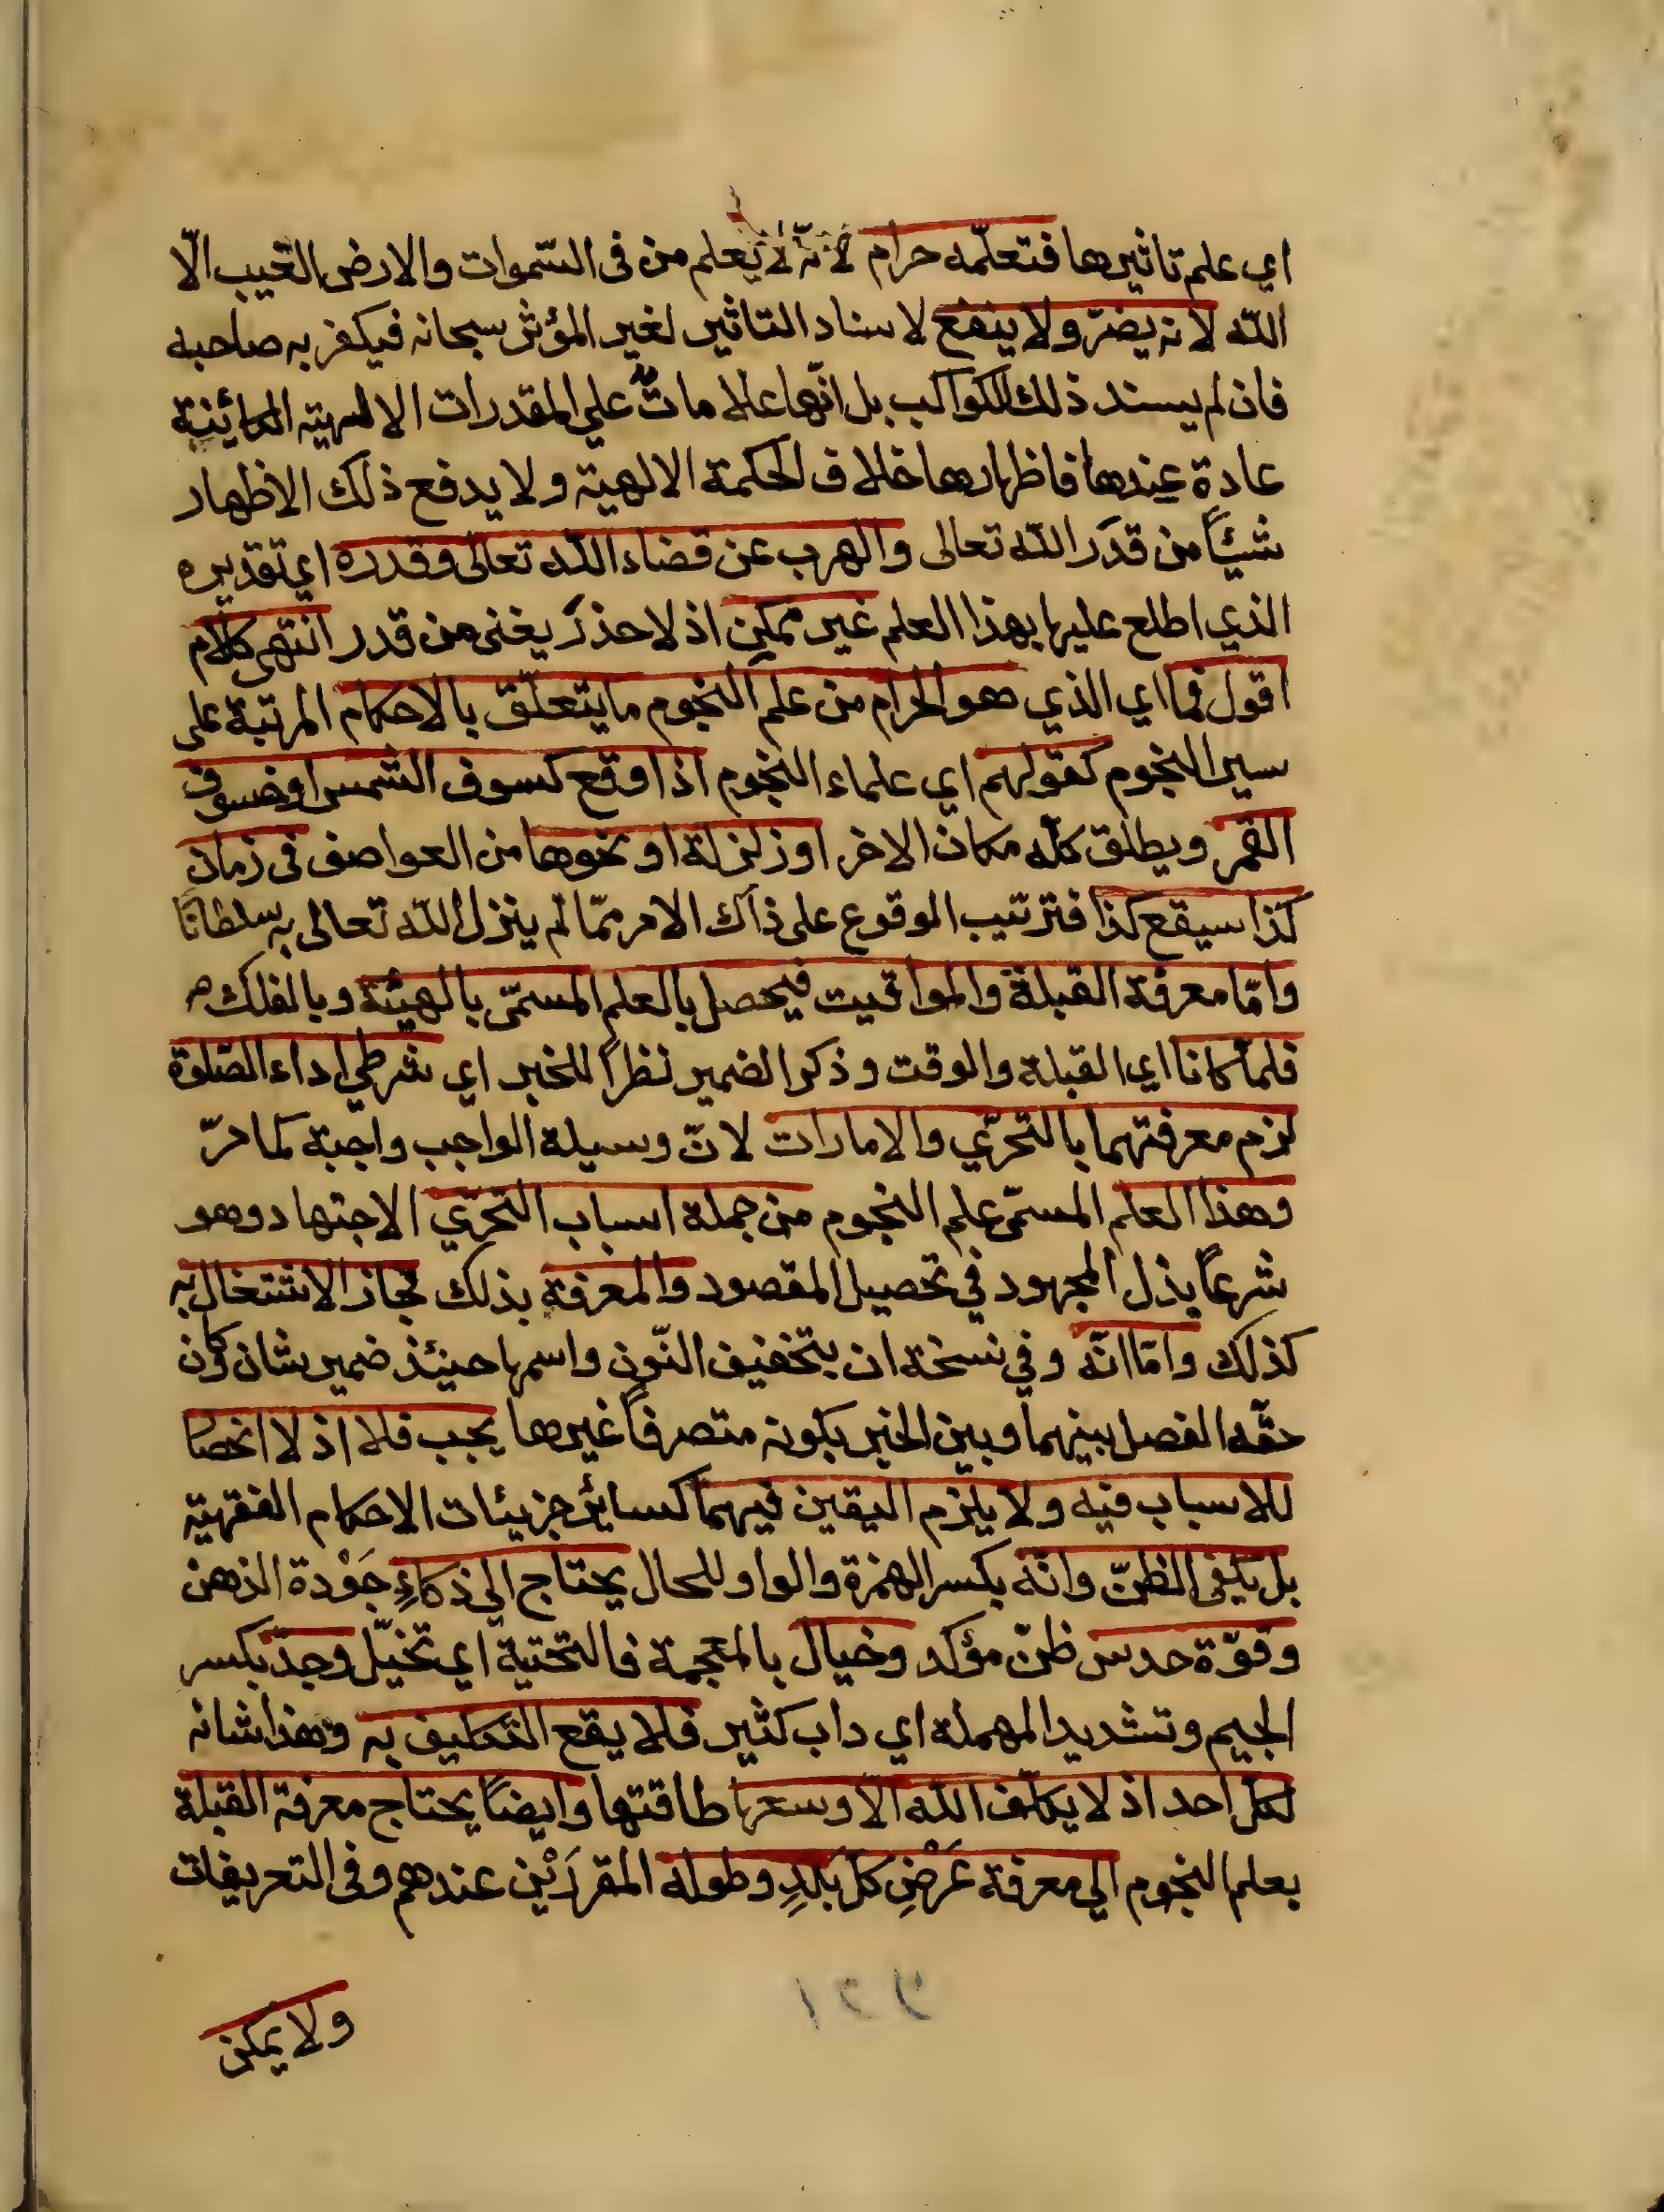 اي علم تاثيرها فتعلّمه حرام لانّه لا يعلم من فى السّموات والارض الغيب الّا
الله لانه يضرّ ولا ينفع لاسناد التاثير لغير المؤثر سبحانه فيكفر به صاحبه
فان لم يسند ذلك للكواكب بل انّها علاماتٌ علي المقدرات الالهية الكائنة
عادة عندها فاظهارها خلاف الحكمة الالهية ولا يدفع ذلك الاظهار
شيئًا من قدَر الله تعالى والهرب عن قضاء الله تعالى وقدره اي تقديره
الذي اطلع عليها بهذا العلم غير ممكن اذ لا حذرَ يغنى من قدر انتهى كلام
اقول فما اي الذي هو الحرام من علم النجوم ما يتعلّق بالاحكام المرتبة على
سير النجوم كقولهم اي علماء النجوم اذا وقع كسوف الشمس او خسوف
القمر ويطلق كلّه مكان الاخر او زلزلة او نحوها من العواصف فى زمان
كذا سيقع كذا فترتيب الوقوع على ذاك الامر ممّا لم ينزل الله تعالى به سلطانًا
وامّا معرفة القبلة والمواقيت فيحصل بالعلم المسمّى بالهيئة وبالفلك
فلما كانا اي القبلة والوقت وذكر الضمير نظرًا للخبر اي شرطي اداء الصّلوة
لزم معرفتهما بالتحرّي والامارات لانّ وسيلة الواجب واجبة كما مرّ
وهذا العلم المسمّى علم النجوم من جملة اسباب التحرّي الاجتهاد وهو
شرعًا بذل المجهود في تحصيل المقصود والمعرفة بذلك فجاز الاشتغال به
كذلك وامّا انّه وفي نسخة ان بتخفيف النّون واسمها حينئذ ضمير شان وكان
حقّه الفصل بينهما وبين الخبر بكونه متصرفًا غيرها يجب فلا اذ لا انحصار
للاسباب فيه ولا يلزم اليقين فيهما كسائر جزيئات الاحكام الفقهية
بل يكفى الظنّ وانّه بكسر الهمزة والواو للحال يحتاج الي ذكاءٍ جَوْدة الذهن
وقوّة حدس ظنّ مؤكد وخيال بالمعجمة فالتحتية اي تخيّل وجدّ بكسر
الجيم وتشديد المهملة اي داب كثير فلا يقع التكليف به وهذا شانه
لكلّ احد اذ لا يكلّف الله الّا وسعها طاقتها وايضًا يحتاج معرفة القبلة
بعلم النجوم الي معرفة عَرْضِ كلّ بَلَدٍ وطوله المقررَيْن عندهم وفى التعريفات
ولا يمكن